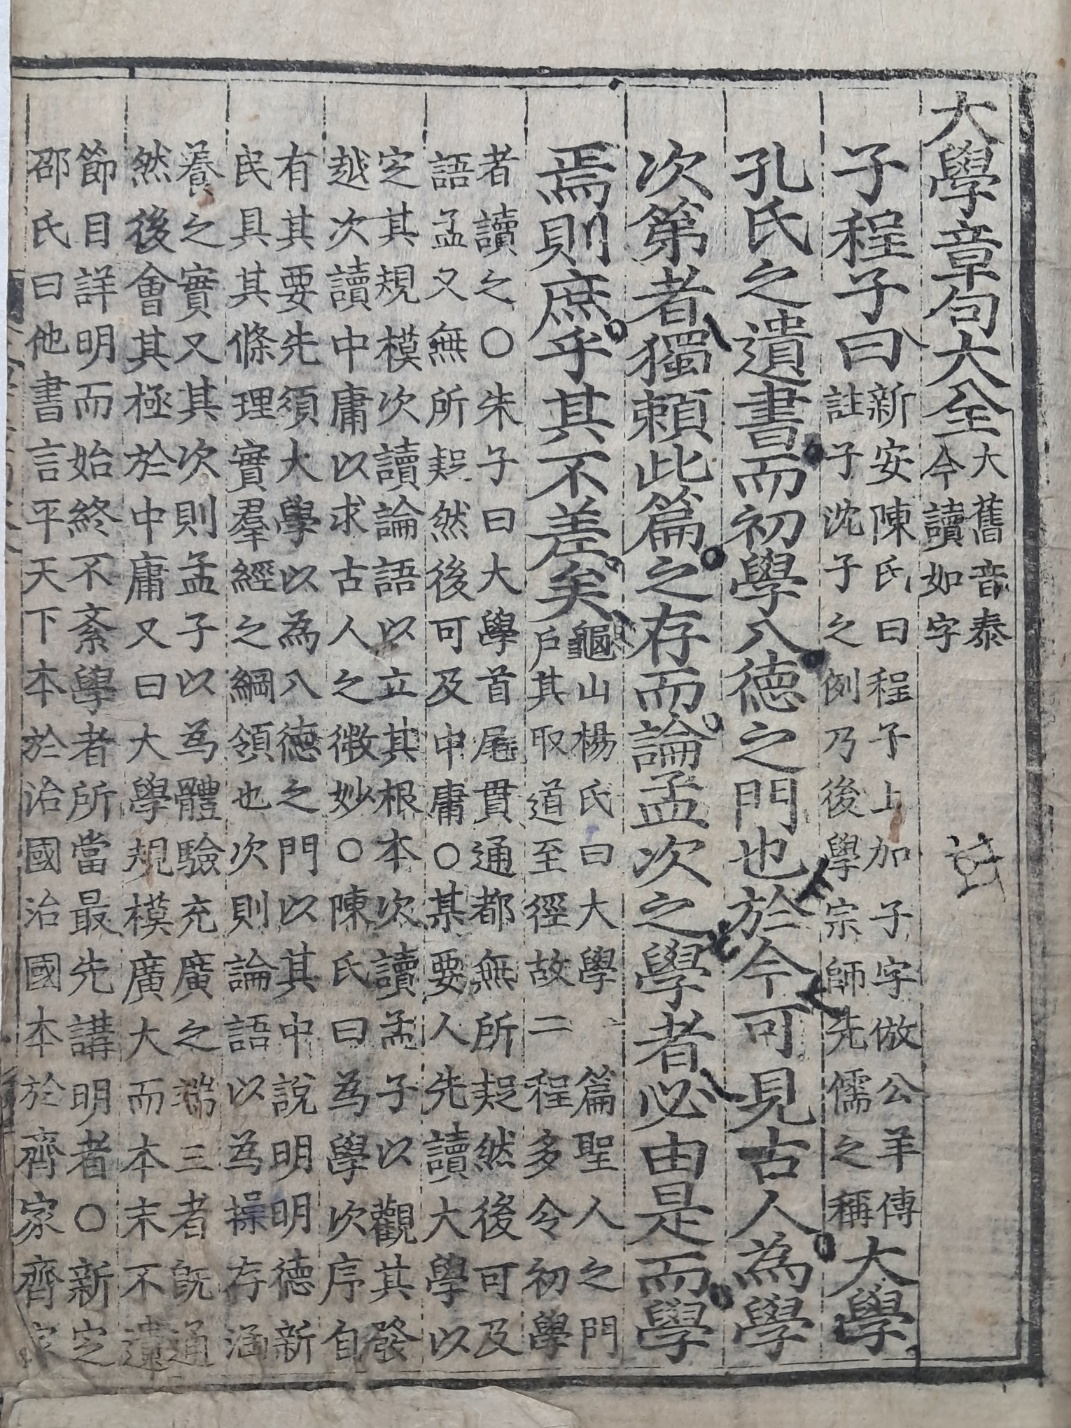 大學章句大全大舊音泰今讀如字
子程子曰新安陳氏曰程子上加子字倣公羊傳註子沈子之例乃後學宗師先儒之稱大學
孔氏之遺書而初學入德之門也於今可見古人為學
次第者獨賴此篇之存而論孟次之學者必由是而學
焉則庶乎其不差矣龜山楊氏曰大學篇聖人之門戶其取道至徑故二程多令初學
者讀之○朱子曰大學首尾貫通都無所疑然後可及
語孟又無所疑然後可及中庸○某要人先讀大學以
定其規模次讀論語以立其根本次讀孟子以觀其發
越次讀中庸以求古人之微妙○陳氏曰為學次序自
有其要先須大學以為入德之門以其中說明明德新
民具其條理實羣經之綱領也次則論語以為操存涵
養之實又其次則孟子以為體驗充廣之端三者旣通
然後會其極於中庸又曰大學規模廣大而本末不遺
節目詳明而始終不紊學者所當最先講明者○新定
邵氏曰他書言平天下本於治國治國本於齊家齊家